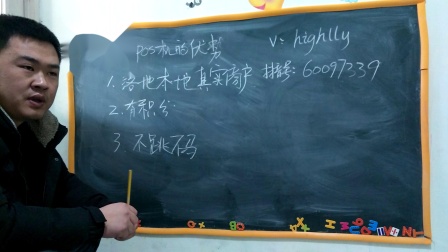 pos机的优势
V: highlly
1. 落地本地真实商户
扫码: 60097339
2. 有积分
3. 不跳码